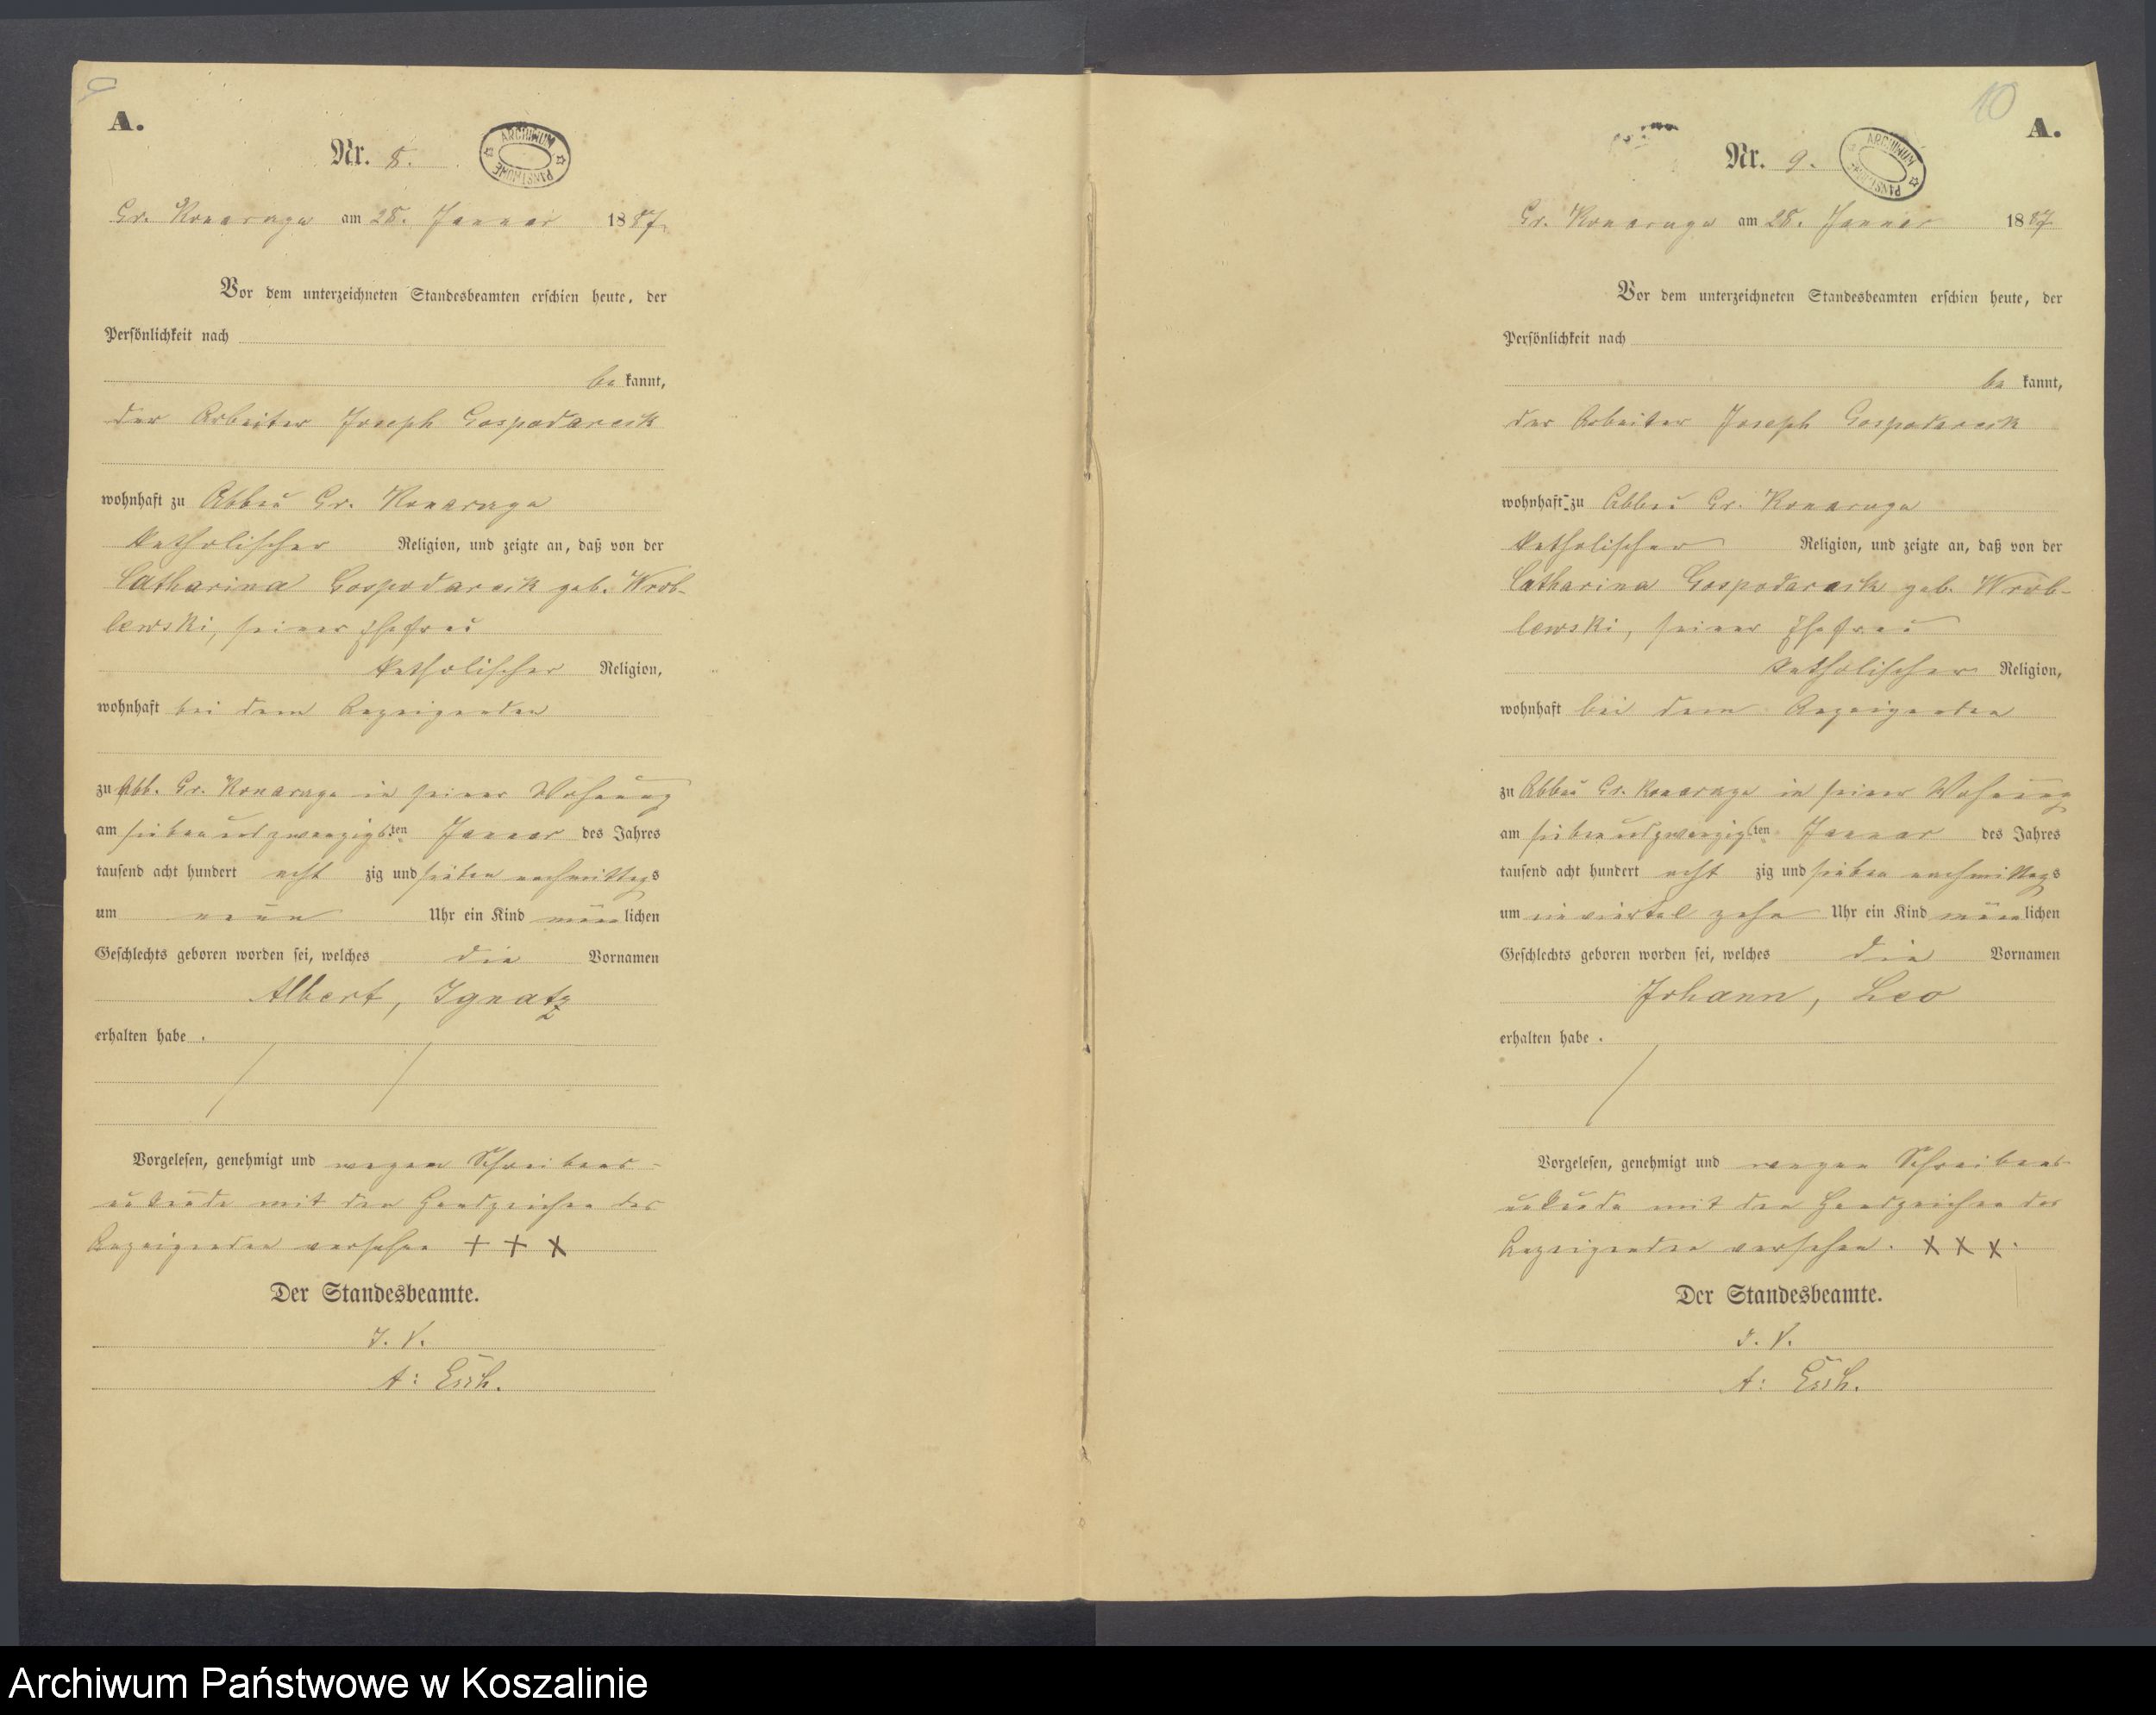 9
A.
Nr. 8.
ARCHIWUM PAŃSTWOWE
Gr. Konarczyn am 28. Januar 1887.
Vor dem unterzeichneten Standesbeamten erschien heute, der
Persönlichkeit nach
be kannt,
der Arbeiter Joseph Gospodarek
wohnhaft zu Abbau Gr. Konarczyn
katholischer Religion, und zeigte an, daß von der
Catharina Gospodarek geb. Wrob-
lewski, seiner Ehefrau
katholischer Religion,
wohnhaft bei dem Anzeigenden
zu Abb. Gr. Konarczyn in seiner Wohnung
am siebenundzwanzigsten Januar des Jahres
tausend acht hundert acht zig und sieben nachmittags
um neun Uhr ein Kind männlichen
Geschlechts geboren worden sei, welches die Vornamen
Albert, Ignatz
erhalten habe .
Vorgelesen, genehmigt und wegen Schreibens-
unkunde mit den Handzeichen des
Anzeigenden versehen + + x
Der Standesbeamte.
J. V.
A: Esch.
10
A.
Nr. 9.
ARCHIWUM PAŃSTWOWE
Gr. Konarczyn am 28. Januar 1887
Vor dem unterzeichneten Standesbeamten erschien heute, der
Persönlichkeit nach
be kannt,
der Arbeiter Joseph Gospodarek
wohnhaft zu Abbau Gr. Konarczyn
katholischer Religion, und zeigte an, daß von der
Catharina Gospodarek geb. Wrob-
lewski, seiner Ehefrau
katholischer Religion,
wohnhaft bei dem Anzeigenden
zu Abbau Gr. Konarczyn in seiner Wohnung
am siebenundzwanzigsten Januar des Jahres
tausend acht hundert acht zig und sieben nachmittags
um ein viertel zehn Uhr ein Kind männlichen
Geschlechts geboren worden sei, welches die Vornamen
Johann, Leo
erhalten habe .
Vorgelesen, genehmigt und wegen Schreibens-
unkunde mit den Handzeichen des
Anzeigenden versehen. x x x.
Der Standesbeamte.
J. V.
A: Esch.
Archiwum Państwowe w Koszalinie